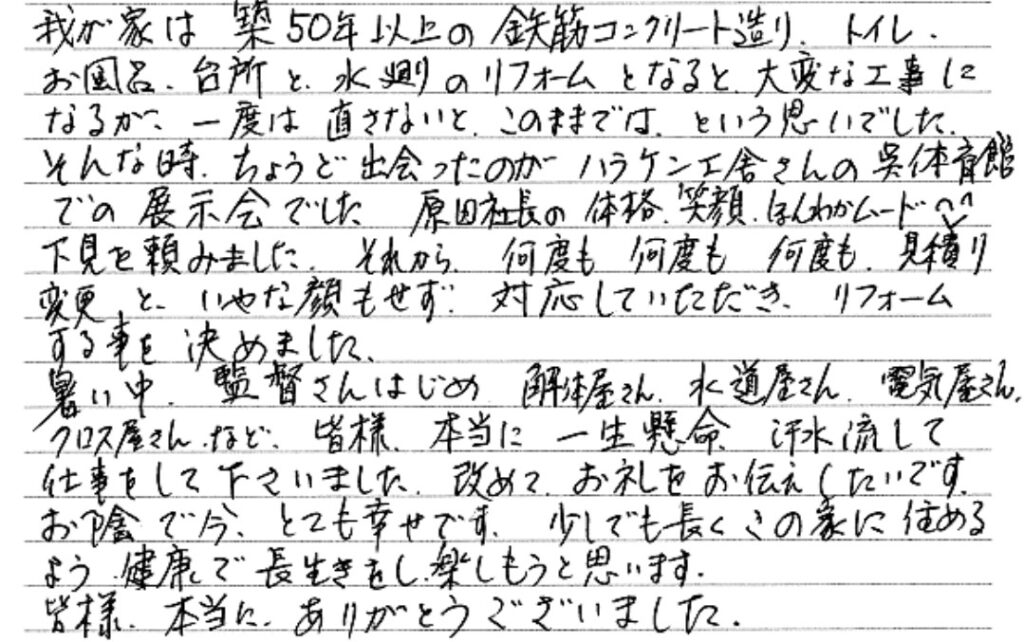 我が家は 築50年以上の 鉄筋コンクリート造り、トイレ、
お風呂、台所 と、水廻りのリフォーム となると、大変な工事に
なるが、一度は 直さないと、このままでは、という思いでした。
そんな時、ちょうど出会ったのが ハラケン工舎さんの呉体育館
での 展示会でした 原田社長の 体格、笑顔、ほんわかムードへ^^
下見を頼みました。それから、何度も 何度も 何度も、見積り
変更 と、いやな顔もせず、対応していただき、リフォーム
する事を 決めました。
暑い中、監督さんはじめ 解体屋さん、水道屋さん、電気屋さん、
クロス屋さん、など、皆様、本当に 一生懸命、汗水流して
仕事をして下さいました。改めて、お礼をお伝えしたいです。
お陰で今、とても幸せです。少しでも長くこの家に住める
よう、健康で長生きをし、楽しもうと思います。
皆様、本当に、ありがとうございました。